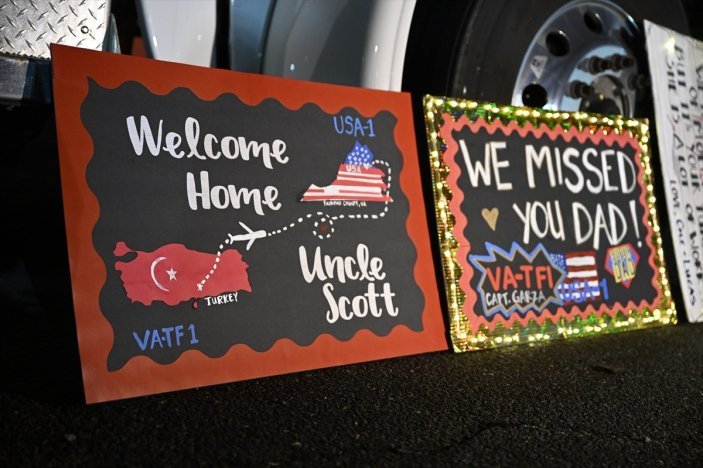 Welcome
Home
USA-1
USA
FAIRFAX COUNTY, VA
TURKEY
Uncle
Scott
VA-TF1
WE MISSED
YOU DAD!
VA-TF1
CAPT. GARZA
USA-1
DAD
BUT